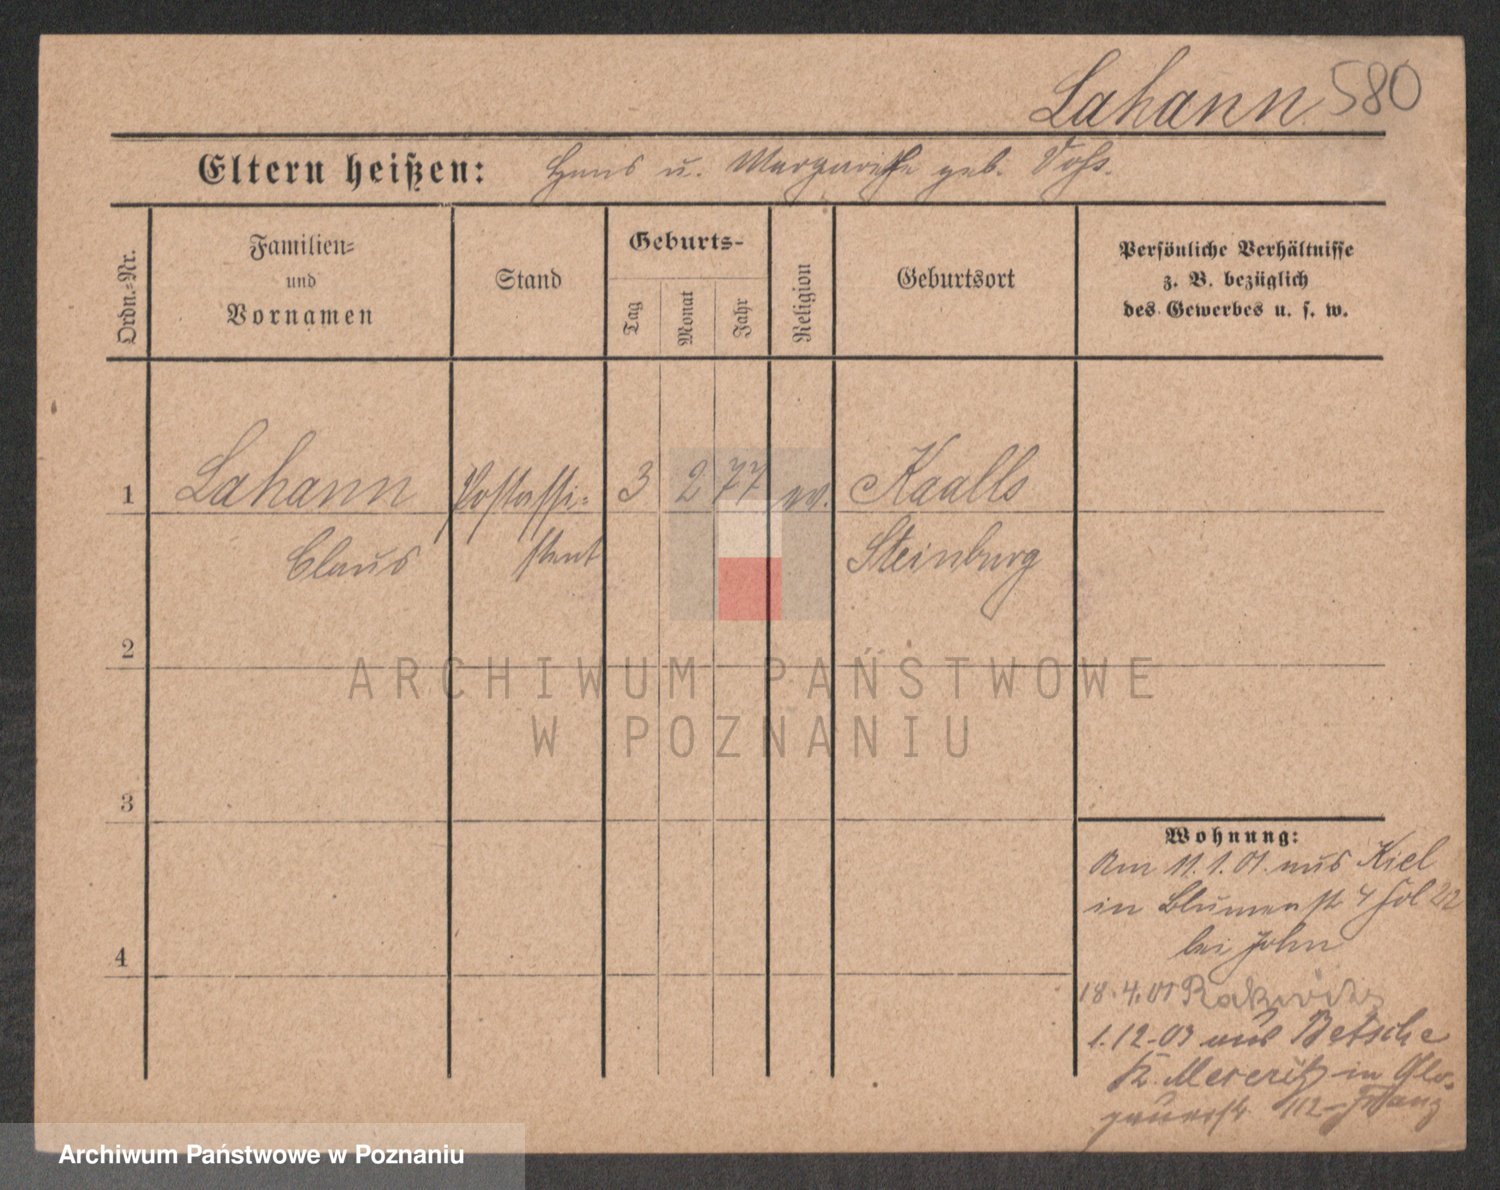 Lahann 580
Eltern heißen: Hans u. Margarethe geb. Voß.
Ordn.-Nr.
Familien-
und
Vornamen
Stand
Geburts-
Tag
Monat
Jahr
Religion
Geburtsort
Persönliche Verhältnisse
z. B. bezüglich
des Gewerbes u. s. w.
1 Lahann Postassi- 3 2 77 ev. Kaalls
Claus stent Steinburg
2
3
4
Wohnung:
Am 11.1.01. aus Kiel
in Blumenstr 4
bei John
18.4.01 Rakwitz
1.12-03 aus Betsche
Kr. Meseritz in Glo-
gauerstr. 112
ARCHIWUM PAŃSTWOWE
W POZNANIU
Archiwum Państwowe w Poznaniu